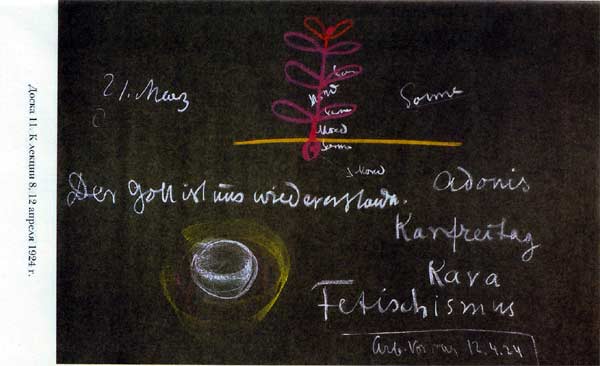 Доска 11. К лекции 8, 12 апреля 1924 г.
21. März
Sonne
Sonne
Mond
Sonne
Mond
Sonne
Mond
Der Gott ist uns wiedererstanden.
Adonis
Karfreitag
Kara
Fetischismus
12.4.24